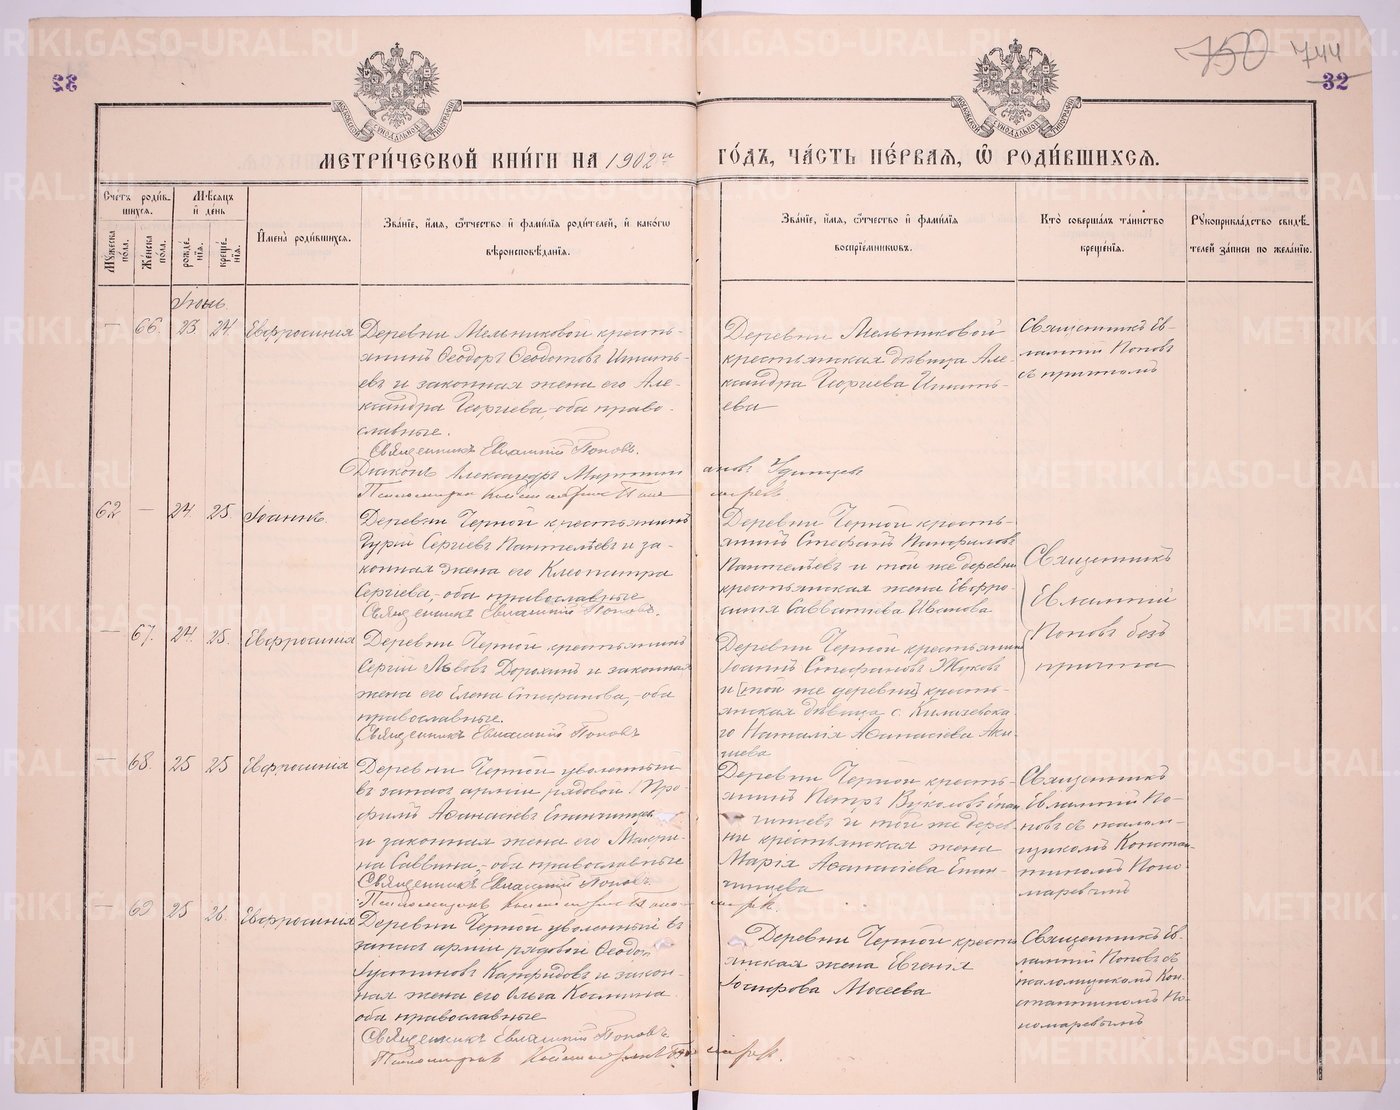 750 744
32
МЕТРИ́ЧЕСКОЙ КНИ́ГИ НА 1902й ГО́ДЪ, ЧА́СТЬ ПЕ́РВАЯ, Ѽ РОДИ́ВШИХСѦ.
Сче́тъ роди́вшихсѧ.
Му́жеска по́ла.
Же́нска по́ла.
Мѣ́сѧцъ и҆ де́нь
рожде́нїѧ.
креще́нїѧ.
И҆мена̀ роди́вшихсѧ.
Зва́нїе, и҆́мѧ, ѻ҆́тчество и҆ фами́лїѧ роди́телей, и҆ како́гѡ
вѣроисповѣ́данїѧ.
Зва́нїе, и҆́мѧ, ѻ҆́тчество и҆ фами́лїѧ
воспрїе́мниковъ.
Кто̀ соверша́лъ та́инство
креще́нїѧ.
Рꙋкоприкла́дство свидѣ́-
телей за́писи по жела́нїю.
Іюнь
— 66. 23 24 Евфросинія
Деревни Мельниковой кресть-
янинъ Ѳеодоръ Ѳеодотовъ Игнать-
евъ и законная жена его Але-
ксандра Георгиева, оба право-
славные.
Священникъ Евлампій Поповъ.
Діаконъ Александръ
Деревни Мельниковой
крестьянская дѣвица Але-
ксандра Георгиева Игнать-
ева
Священникъ Ев-
лампій Поповъ
съ причтомъ
62 — 24 25. Іоаннъ
Деревни Черной крестьянинъ
Гурій Сергіевъ Пантелѣевъ и за-
конная жена его Клеопатра
Сергіева, оба православные
Священникъ Евлампій Поповъ.
Деревни Черной кресть-
янинъ Стефанъ Панфиловъ
Пантелѣевъ и той же деревни
крестьянская жена Евфро-
синія Савватіева Иванова
Священникъ
Евлампій
Поповъ безъ
причта
— 67. 24. 25. Евфросинія
Деревни Черной крестьянинъ
Сергій Львовъ и законная
жена его Елена Стефанова, оба
православные.
Священникъ Евлампій Поповъ
Деревни Черной крестьянинъ
Іоаннъ Стефановъ Жуковъ
и [той же деревни] кресть-
янская дѣвица с.
го Наталія Аѳанасіева Аки-
шева
— 68. 25 25 Евфросинія
Деревни Черной уволенный
въ запасъ арміи рядовой Про-
фирій Аѳанасіевъ Епанчинцевъ
и законная жена его Матро-
на Саввина, оба православные
Священникъ Евлампій Поповъ.
Псаломщикъ Константинъ Пономаревъ.
Деревни Черной кресть-
янинъ Петръ Вуколовъ Епан-
чинцевъ и той же дерев-
ни крестьянская жена
Марія Аѳанасіева Епан-
чинцева
Священникъ
Евлампій По-
повъ съ псалом-
щикомъ Констан-
тиномъ Поно-
маревымъ
— 69 25 26. Евфросинія
Деревни Черной уволенный въ
запасъ арміи рядовой Ѳеодоръ
Іустиновъ и закон-
ная жена его Ольга Космина
оба православные
Священникъ Евлампій Поповъ.
Псаломщикъ Константинъ Пономаревъ.
Деревни Черной кресть-
янская жена Евгенія
Іосифова Мосеева
Священникъ Ев-
лампій Поповъ съ
псаломщикомъ Кон-
стантиномъ По-
номаревымъ